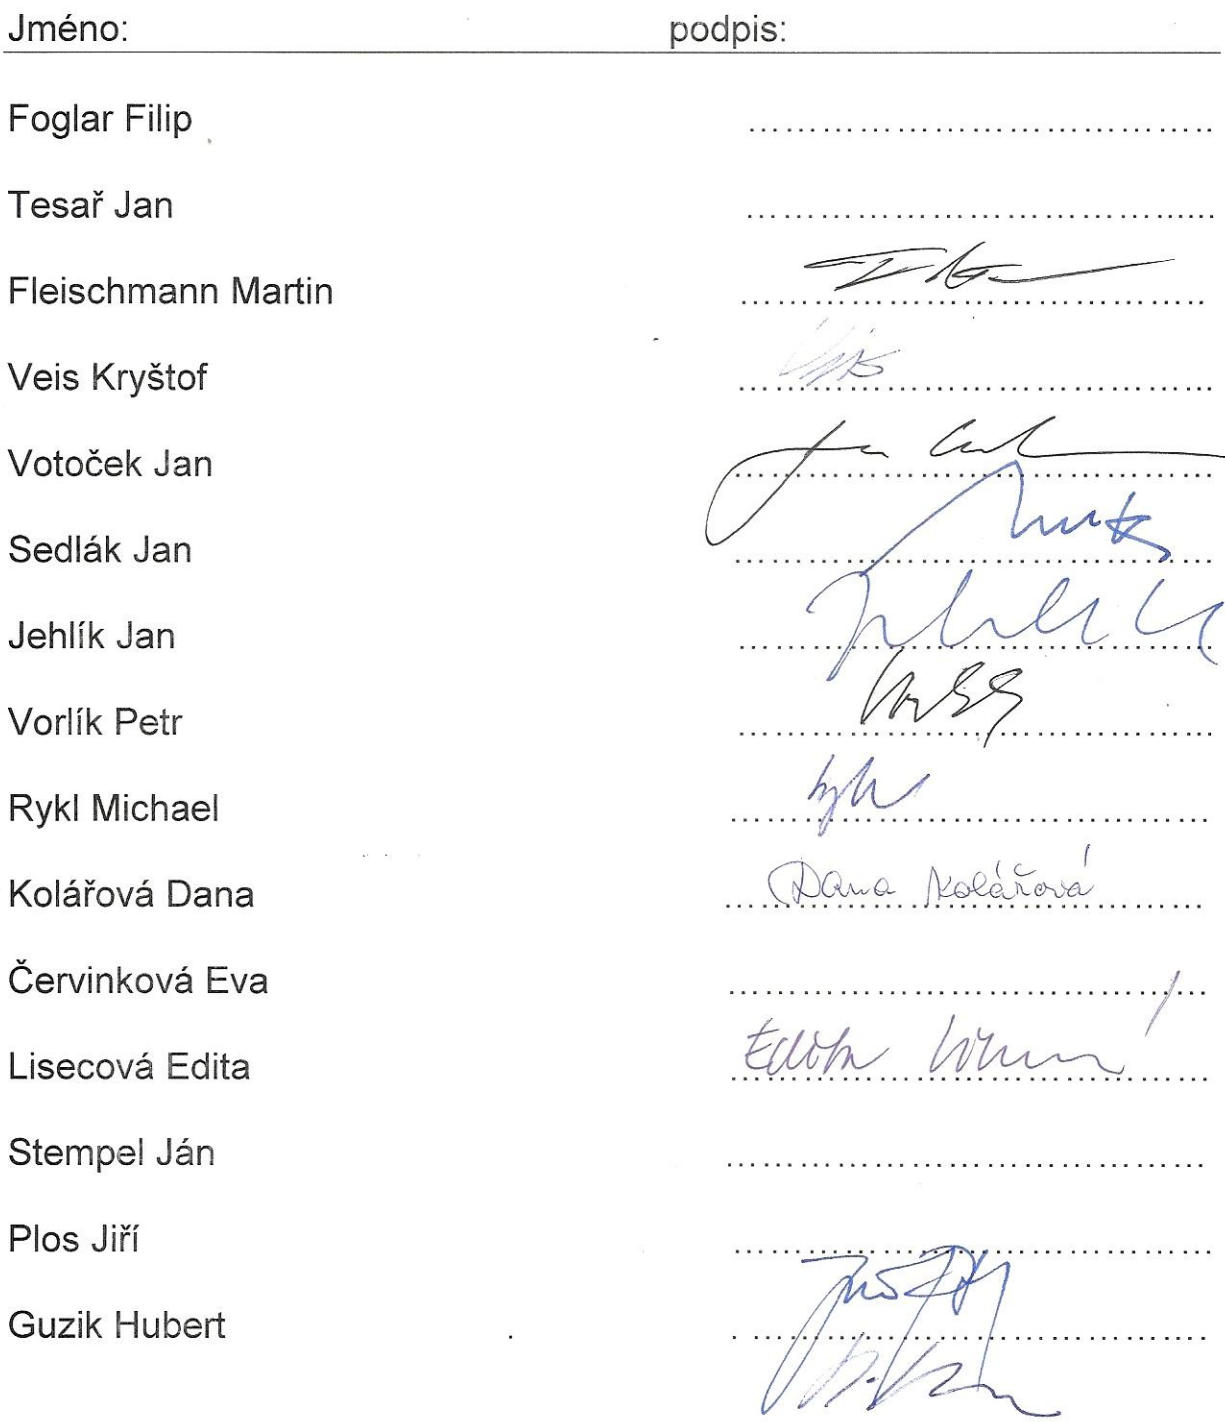 Jméno: podpis:
Foglar Filip
Tesař Jan
Fleischmann Martin
Veis Kryštof
Votoček Jan
Sedlák Jan
Jehlík Jan
Vorlík Petr
Rykl Michael
Kolářová Dana Dana Kolářová
Červinková Eva
Lisecová Edita Edita
Stempel Ján
Plos Jiří
Guzik Hubert